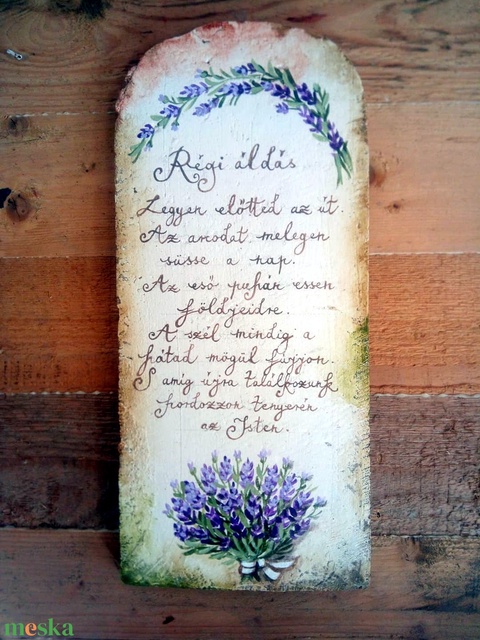 Régi áldás
Legyen előtted az út.
Az arcodat melegen
süsse a nap.
Az eső puhán essen
földjeidre.
A szél mindig a
hátad mögül fújjon.
S amíg újra találkozunk
hordozzon tenyerén
az Isten.
meska